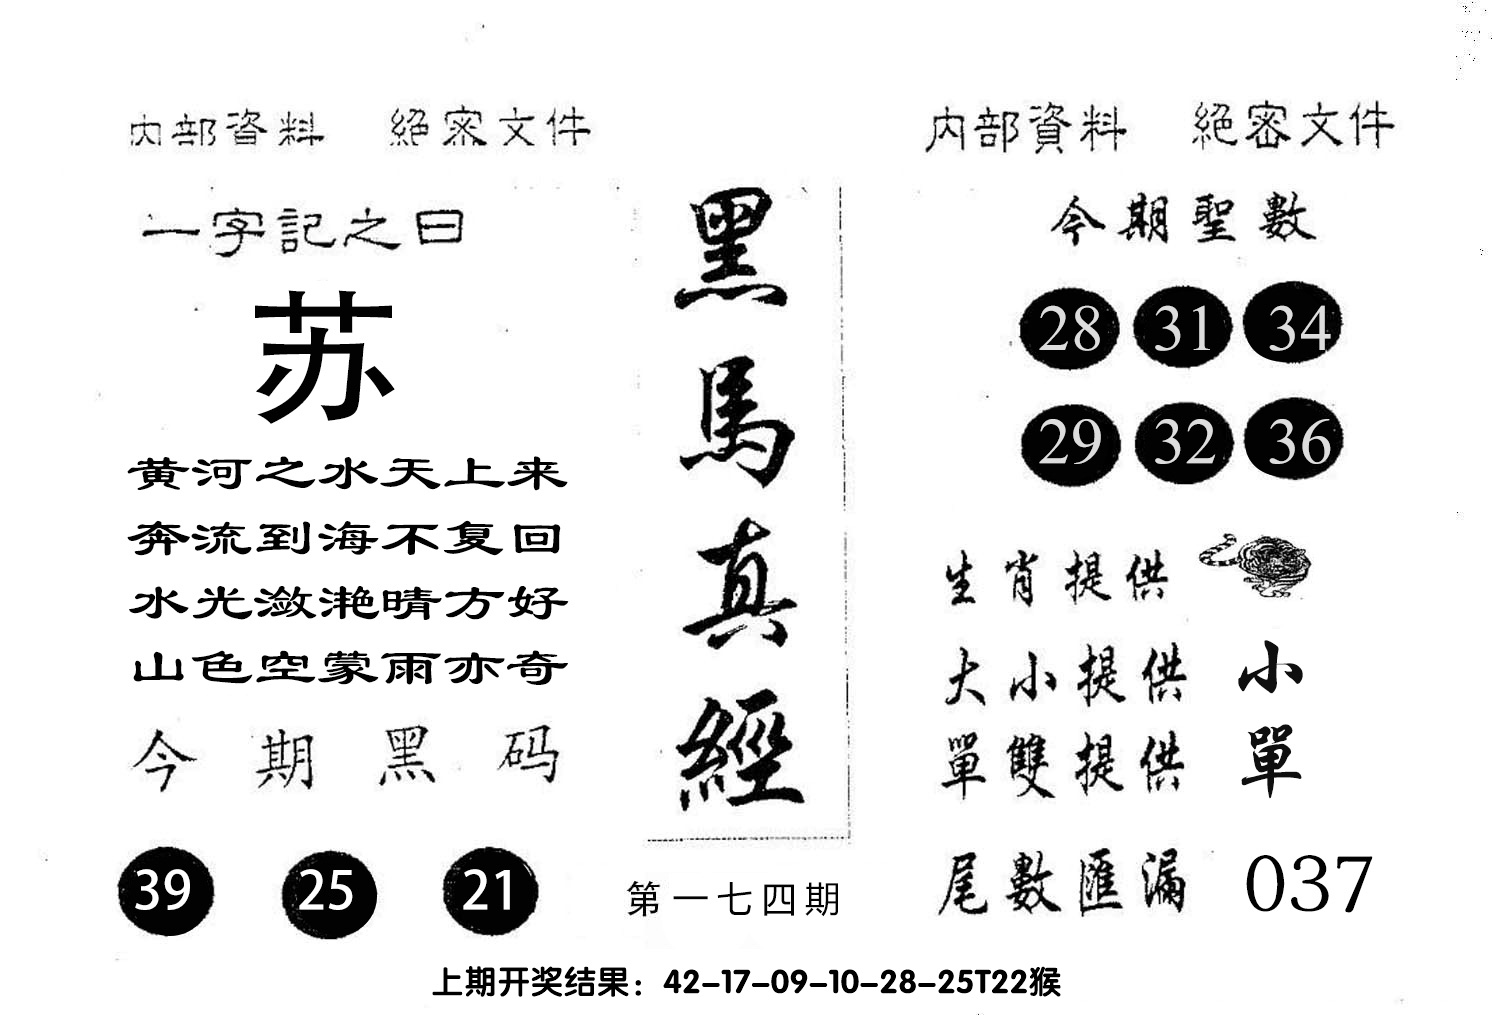 内部資料 絕密文件
一字記之曰
苏
黄河之水天上来
奔流到海不复回
水光潋滟晴方好
山色空蒙雨亦奇
今期黑码
39 25 21
黑馬真經
第一七四期
内部資料 絕密文件
今期聖數
28 31 34
29 32 36
生肖提供
大小提供 小
單雙提供 單
尾數匯漏 037
上期开奖结果：42-17-09-10-28-25T22猴